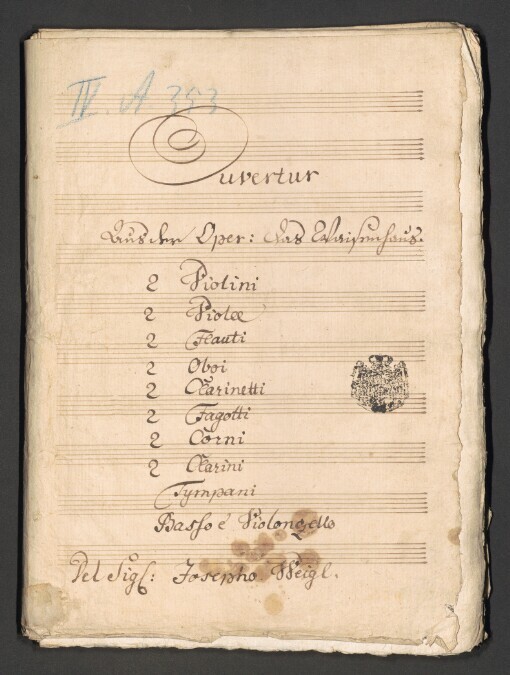 IV. A 353
Ouvertur
Aus der Oper: das Waisenhaus.
2 Violini
2 Violae
2 Flauti
2 Oboi
2 Clarinetti
2 Fagotti
2 Corni
2 Clarini
Tympani
Basso è Violongello
Del Sigre: Josepho Weigl.